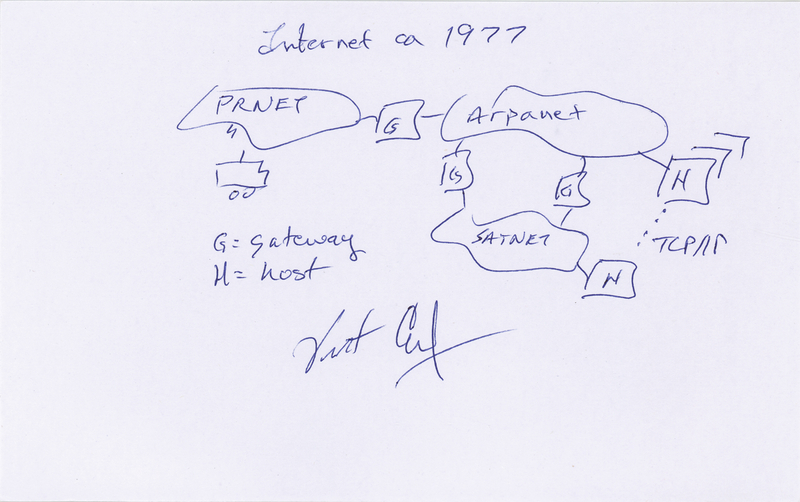 Internet ca 1977
PRNET
G
Arpanet
G
G
H
SATNET
TCP/IP
H
G = gateway
H = host
Vint Cerf